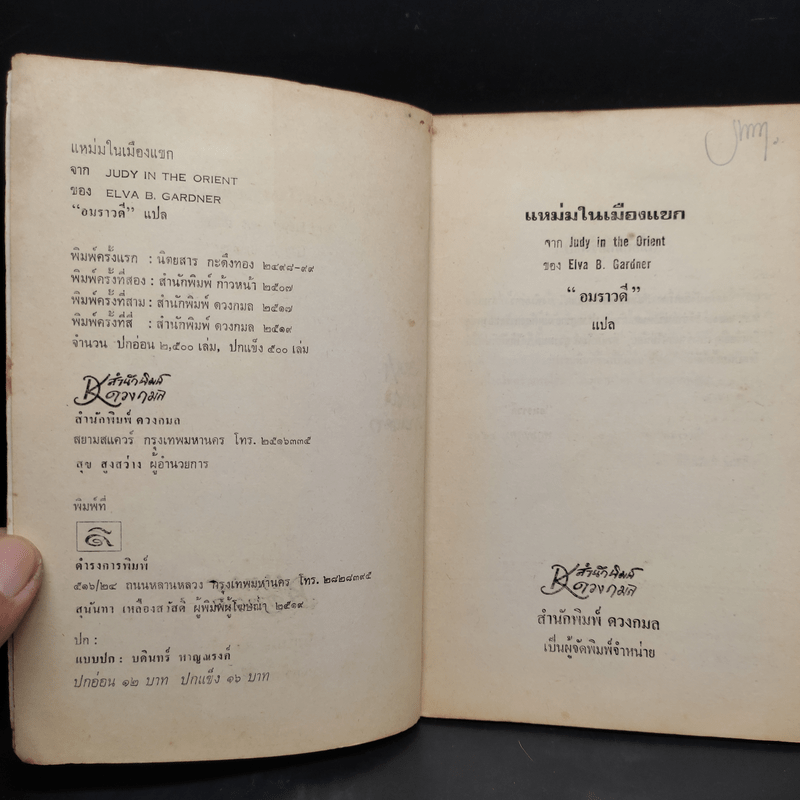 แหม่มในเมืองแขก
จาก JUDY IN THE ORIENT
ของ ELVA B. GARDNER
“อมราวดี” แปล
พิมพ์ครั้งแรก : นิตยสาร กะดึงทอง ๒๔๙๘-๙๙
พิมพ์ครั้งที่สอง : สำนักพิมพ์ ก้าวหน้า ๒๕๐๗
พิมพ์ครั้งที่สาม : สำนักพิมพ์ ดวงกมล ๒๕๑๗
พิมพ์ครั้งที่สี่ : สำนักพิมพ์ ดวงกมล ๒๕๑๙
จำนวน ปกอ่อน ๒,๕๐๐ เล่ม, ปกแข็ง ๕๐๐ เล่ม
DK สำนักพิมพ์
ดวงกมล
สำนักพิมพ์ ดวงกมล
สยามสแควร์ กรุงเทพมหานคร โทร. ๒๕๑๖๓๓๕
สุข สูงสว่าง ผู้อำนวยการ
พิมพ์ที่
ดำรงการพิมพ์
๕๑๖/๒๔ ถนนหลานหลวง กรุงเทพมหานคร โทร. ๒๘๒๘๓๙๕
สุนันทา เหลืองสวัสดิ์ ผู้พิมพ์ผู้โฆษณา ๒๕๑๙
ปก :
แบบปก : บดินทร์ หาญณรงค์
ปกอ่อน ๑๒ บาท ปกแข็ง ๑๖ บาท
แหม่มในเมืองแขก
จาก Judy in the Orient
ของ Elva B. Gardner
“อมราวดี”
แปล
DK สำนักพิมพ์
ดวงกมล
สำนักพิมพ์ ดวงกมล
เป็นผู้จัดพิมพ์จำหน่าย